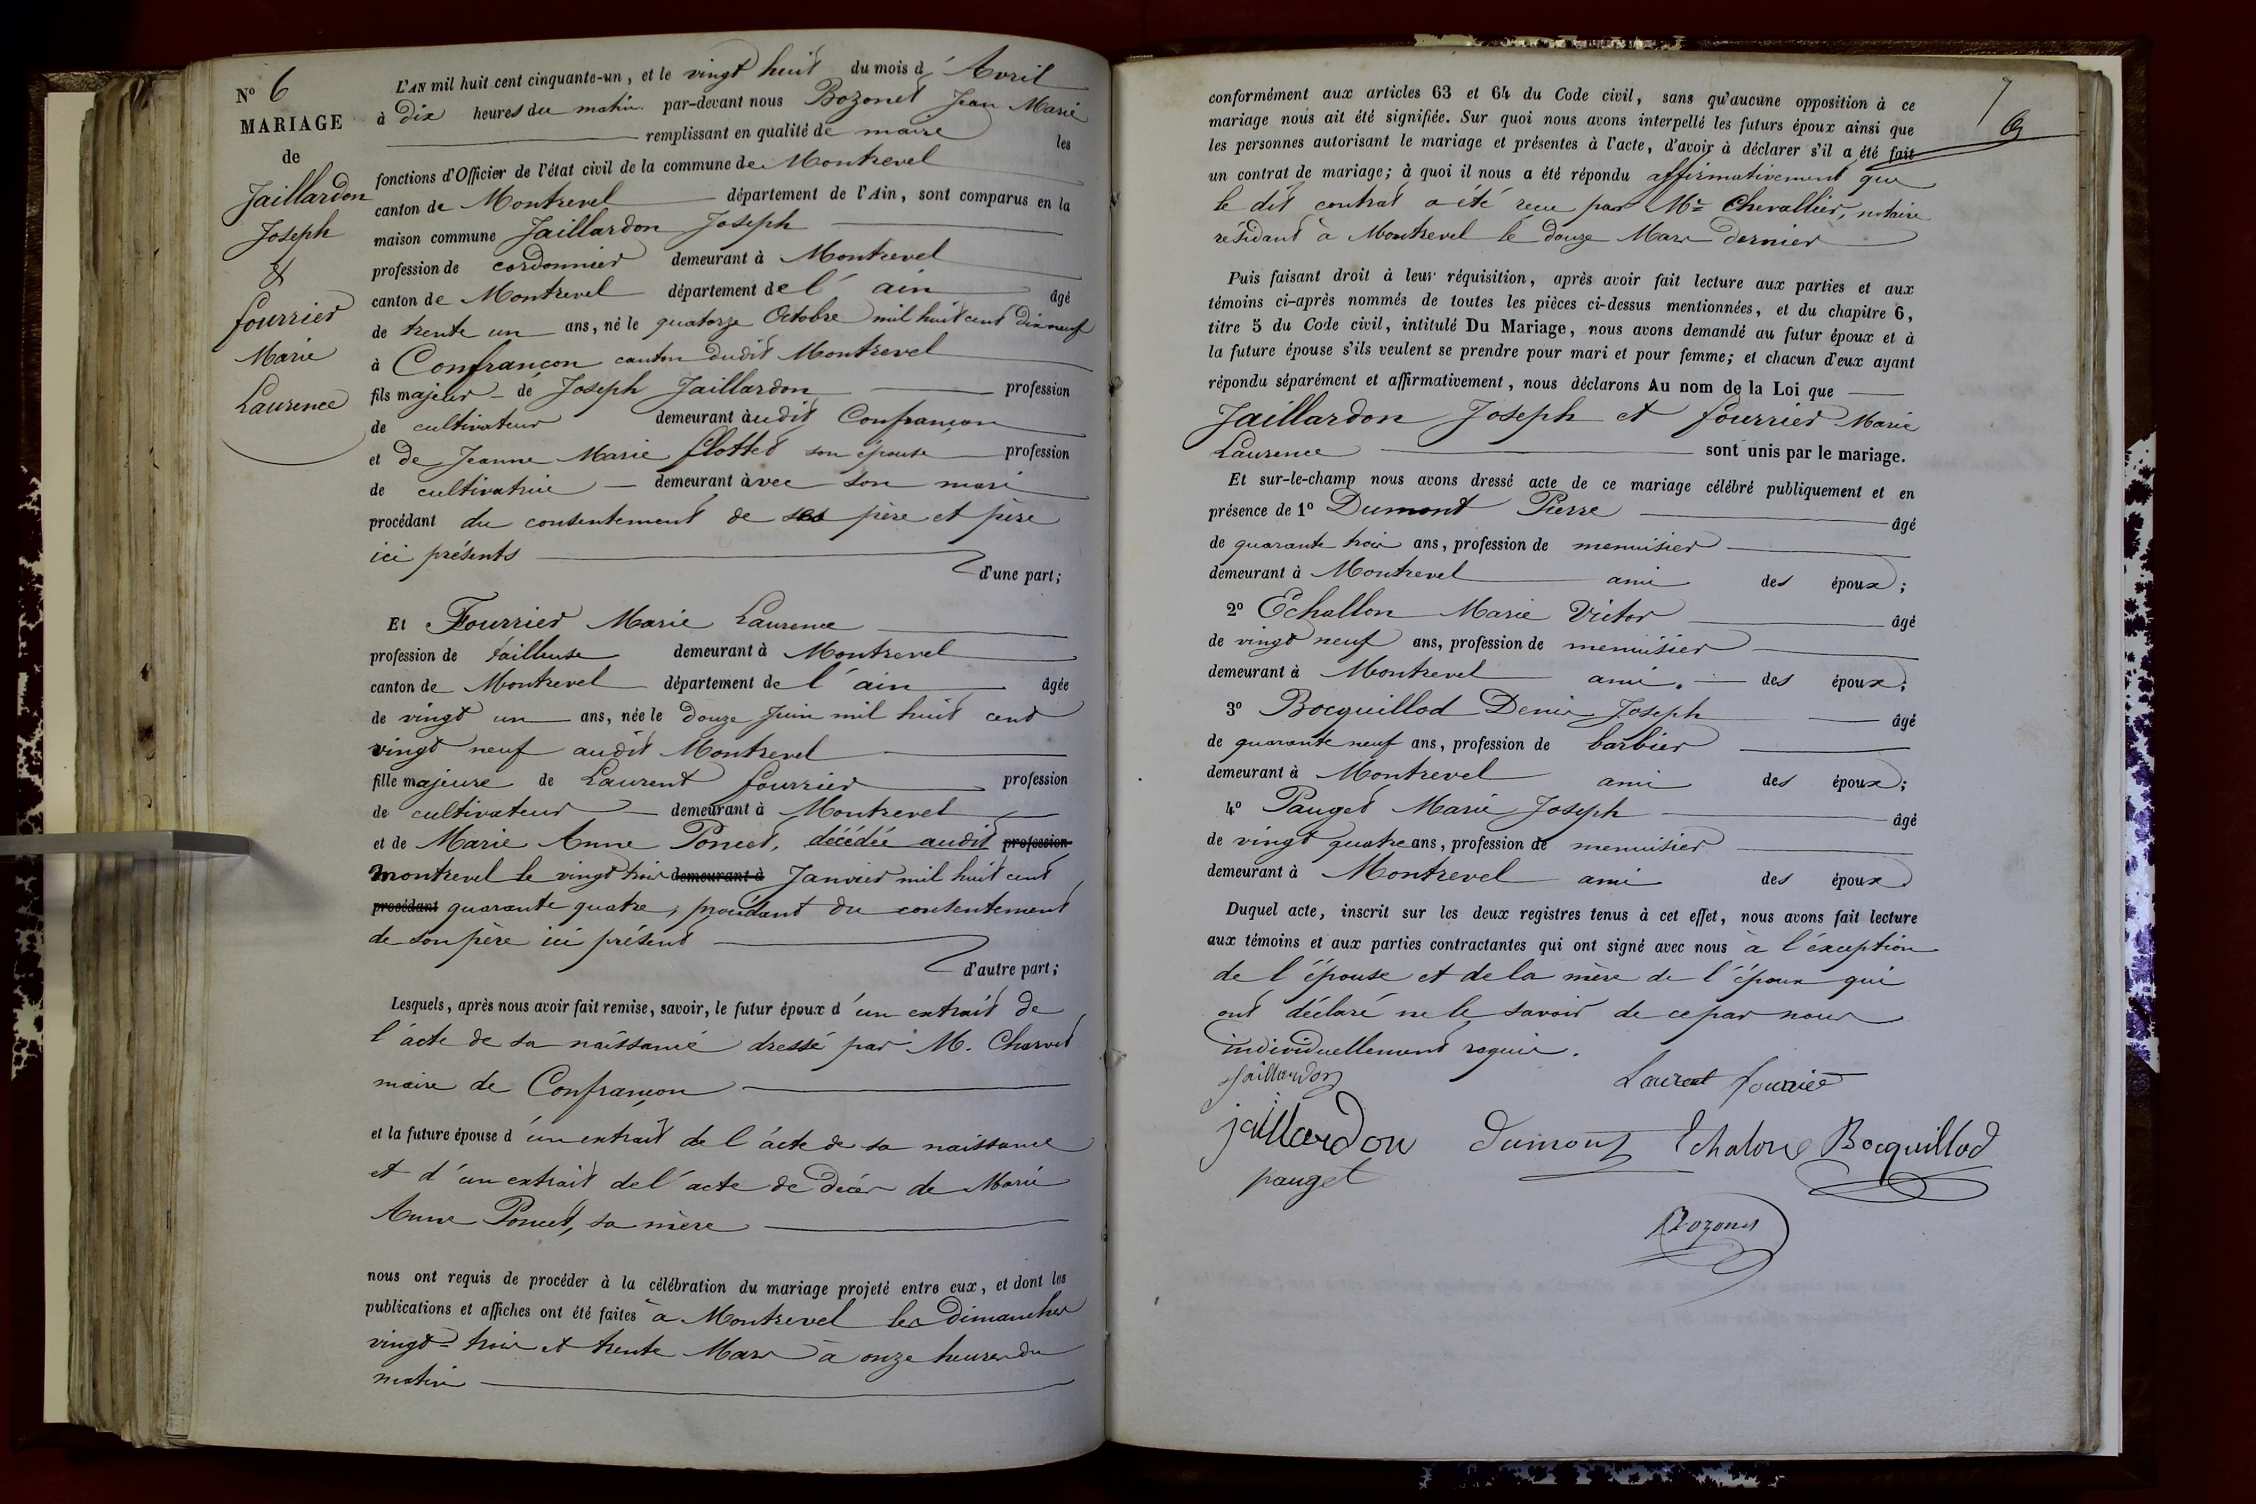 N° 6
MARIAGE
de
Jaillardon
Joseph
&
fourrier
Marie
Laurence
L'AN mil huit cent cinquante-un, et le vingt huit du mois d'Avril
à dix heures du matin par-devant nous Bozonet Jean Marie
remplissant en qualité de maire les
fonctions d'Officier de l'état civil de la commune de Montrevel
canton de Montrevel département de l'Ain, sont comparus en la
maison commune Jaillardon Joseph
profession de cordonnier demeurant à Montrevel
canton de Montrevel département de l'ain âgé
de trente un ans, né le quatorze Octobre mil huit cent dix neuf
à Confrançon canton dudit Montrevel
fils majeur de Joseph Jaillardon profession
de cultivateur demeurant audit Confrançon
et de Jeanne Marie flottet son épouse profession
de cultivatrice demeurant avec son mari
procédant du consentement de ses père et père
ici présents
d'une part;
Et Fourrier Marie Laurence
profession de tailleuse demeurant à Montrevel
canton de Montrevel département de l'ain âgée
de vingt un ans, née le douze Juin mil huit cent
vingt neuf audit Montrevel
fille majeure de Laurent fourrier profession
de cultivateur demeurant à Montrevel
et de Marie Anne Poncet, décédée audit profession
Montrevel le vingt trois demeurant à Janvier mil huit cent
procédant quarante quatre, procédant du consentement
de son père ici présent
d'autre part;
Lesquels, après nous avoir fait remise, savoir, le futur époux d'un extrait de
l'acte de sa naissance dressé par M. Charvet
maire de Confrançon
et la future épouse d'un extrait de l'acte de sa naissance
et d'un extrait de l'acte de décès de Marie
Anne Poncet, sa mère
nous ont requis de procéder à la célébration du mariage projeté entre eux, et dont les
publications et affiches ont été faites à Montrevel les dimanches
vingt-trois et trente Mars à onze heures du
matin
7
conformément aux articles 63 et 64 du Code civil, sans qu'aucune opposition à ce
mariage nous ait été signifiée. Sur quoi nous avons interpellé les futurs époux ainsi que
les personnes autorisant le mariage et présentes à l'acte, d'avoir à déclarer s'il a été fait
un contrat de mariage; à quoi il nous a été répondu affirmativement que
le dit contrat a été reçu par Mr Chevallier, notaire
résidant à Montrevel le douze Mars dernier
Puis faisant droit à leur réquisition, après avoir fait lecture aux parties et aux
témoins ci-après nommés de toutes les pièces ci-dessus mentionnées, et du chapitre 6,
titre 5 du Code civil, intitulé Du Mariage, nous avons demandé au futur époux et à
la future épouse s'ils veulent se prendre pour mari et pour femme; et chacun d'eux ayant
répondu séparément et affirmativement, nous déclarons Au nom de la Loi que
Jaillardon Joseph et fourrier Marie
Laurence sont unis par le mariage.
Et sur-le-champ nous avons dressé acte de ce mariage célébré publiquement et en
présence de 1° Dumont Pierre âgé
de quarante trois ans, profession de menuisier
demeurant à Montrevel ami des époux;
2° Echallon Marie Victor âgé
de vingt neuf ans, profession de menuisier
demeurant à Montrevel ami des époux;
3° Bocquillod Denis Joseph âgé
de quarante neuf ans, profession de barbier
demeurant à Montrevel ami des époux;
4° Pauget Marie Joseph âgé
de vingt quatre ans, profession de menuisier
demeurant à Montrevel ami des époux
Duquel acte, inscrit sur les deux registres tenus à cet effet, nous avons fait lecture
aux témoins et aux parties contractantes qui ont signé avec nous à l'exception
de l'épouse et de la mère de l'époux qui
ont déclaré ne le savoir de ce par nous
individuellement requis.
jaillardon Laurent fourrier
jaillardon Dumont Echalon Bocquillod
pauget
Bozonet